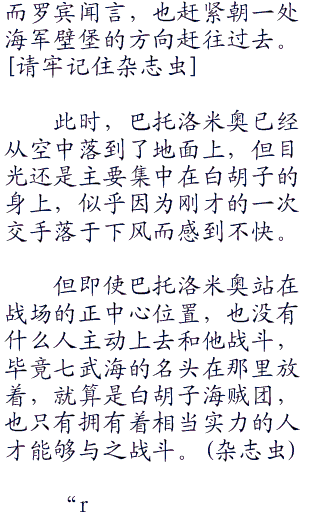 而罗宾闻言，也赶紧朝一处
海军壁堡的方向赶往过去。
[请牢记住杂志虫]
此时，巴托洛米奥已经
从空中落到了地面上，但目
光还是主要集中在白胡子的
身上，似乎因为刚才的一次
交手落于下风而感到不快。
但即使巴托洛米奥站在
战场的正中心位置，也没有
什么人主动上去和他战斗，
毕竟七武海的名头在那里放
着，就算是白胡子海贼团，
也只有拥有着相当实力的人
才能够与之战斗。(杂志虫)
“r